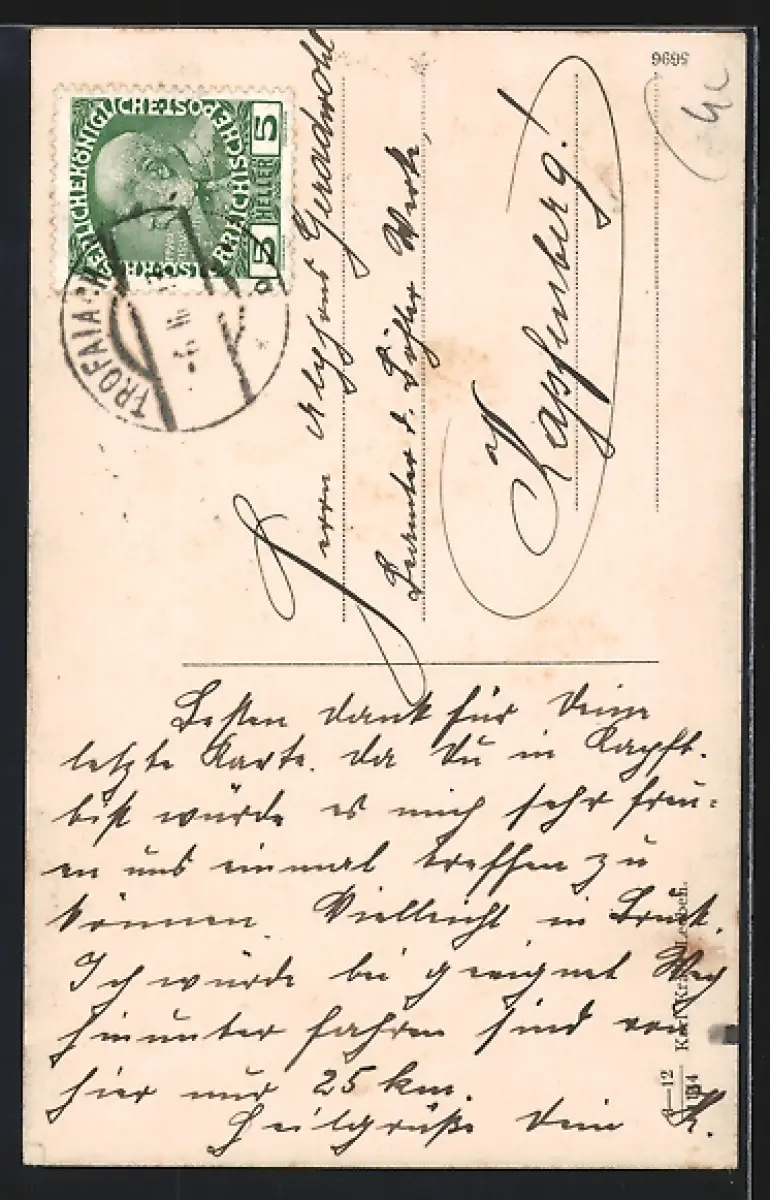 5696
KAISERLICHE KÖNIGLICHE ÖSTERREICHISCHE POST
5 HELLER 5
TROFAIACH
Herrn Alfons Geradwohl
Beamter d. Böhler Werke,
Kapfenberg!
Besten Dank für Deine
letzte Karte. Da Du in Kapfb.
bist würde es mich sehr freu-
en uns einmal treffen zu
können. Vielleicht in Bruck.
Ich würde bei geeignet Weg
hinunter fahren sind von
hier nur 25 km.
Heilgrüße Dein K.
Karl Leoben.